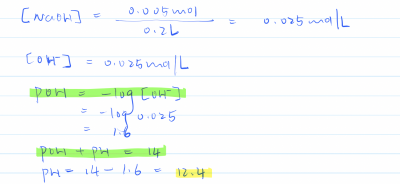 [NaOH] = 0.005mol / 0.2L = 0.025mol/L
[OH⁻] = 0.025mol/L
pOH = -log[OH⁻]
= -log 0.025
= 1.6
pOH + pH = 14
pH = 14 - 1.6 = 12.4